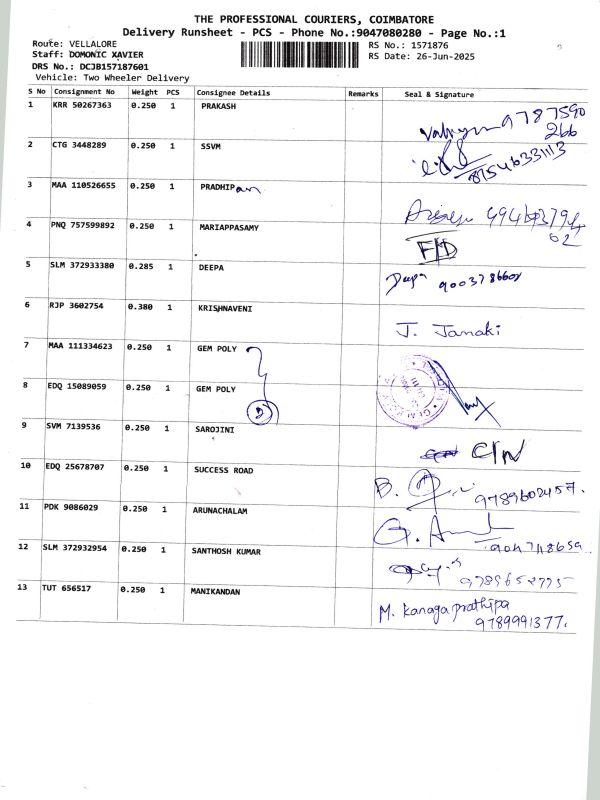 THE PROFESSIONAL COURIERS, COIMBATORE
Delivery Runsheet - PCS - Phone No.:9047080280 - Page No.:1
Route: VELLALORE
RS No.: 1571876
Staff: DOMONIC XAVIER
RS Date: 26-Jun-2025
DRS No.: DCJB157187601
Vehicle: Two Wheeler Delivery
S No Consignment No Weight PCS Consignee Details Remarks Seal & Signature
1 KRR 50267363 0.250 1 PRAKASH
9787590
266
2 CTG 3448289 0.250 1 SSVM
8754633113
3 MAA 110526655 0.250 1 PRADHIPan
4 PNQ 757599892 0.250 1 MARIAPPASAMY
F/D
5 SLM 372933380 0.285 1 DEEPA
Deepa
6 RJP 3602754 0.380 1 KRISHNAVENI
J. Janaki
7 MAA 111334623 0.250 1 GEM POLY
8 EDQ 15089059 0.250 1 GEM POLY
2
9 SVM 7139536 0.250 1 SAROJINI
C/N
10 EDQ 25678707 0.250 1 SUCCESS ROAD
B. 9789602457.
11 PDK 9086029 0.250 1 ARUNACHALAM
G.
12 SLM 372932954 0.250 1 SANTHOSH KUMAR
13 TUT 656517 0.250 1 MANIKANDAN
M. Kanaga prathipa
9789991377.